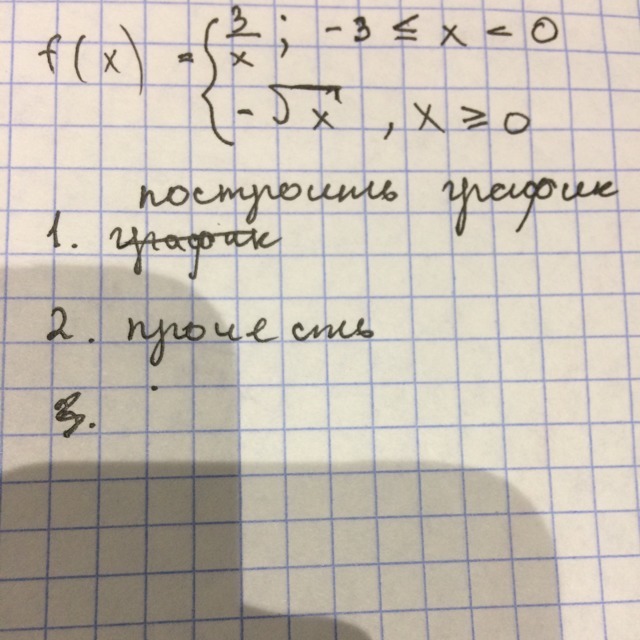 f(x) = { 3/x ; -3 ≤ x < 0
-√x , x ≥ 0
построить график
1. график
2. прочесть
3.